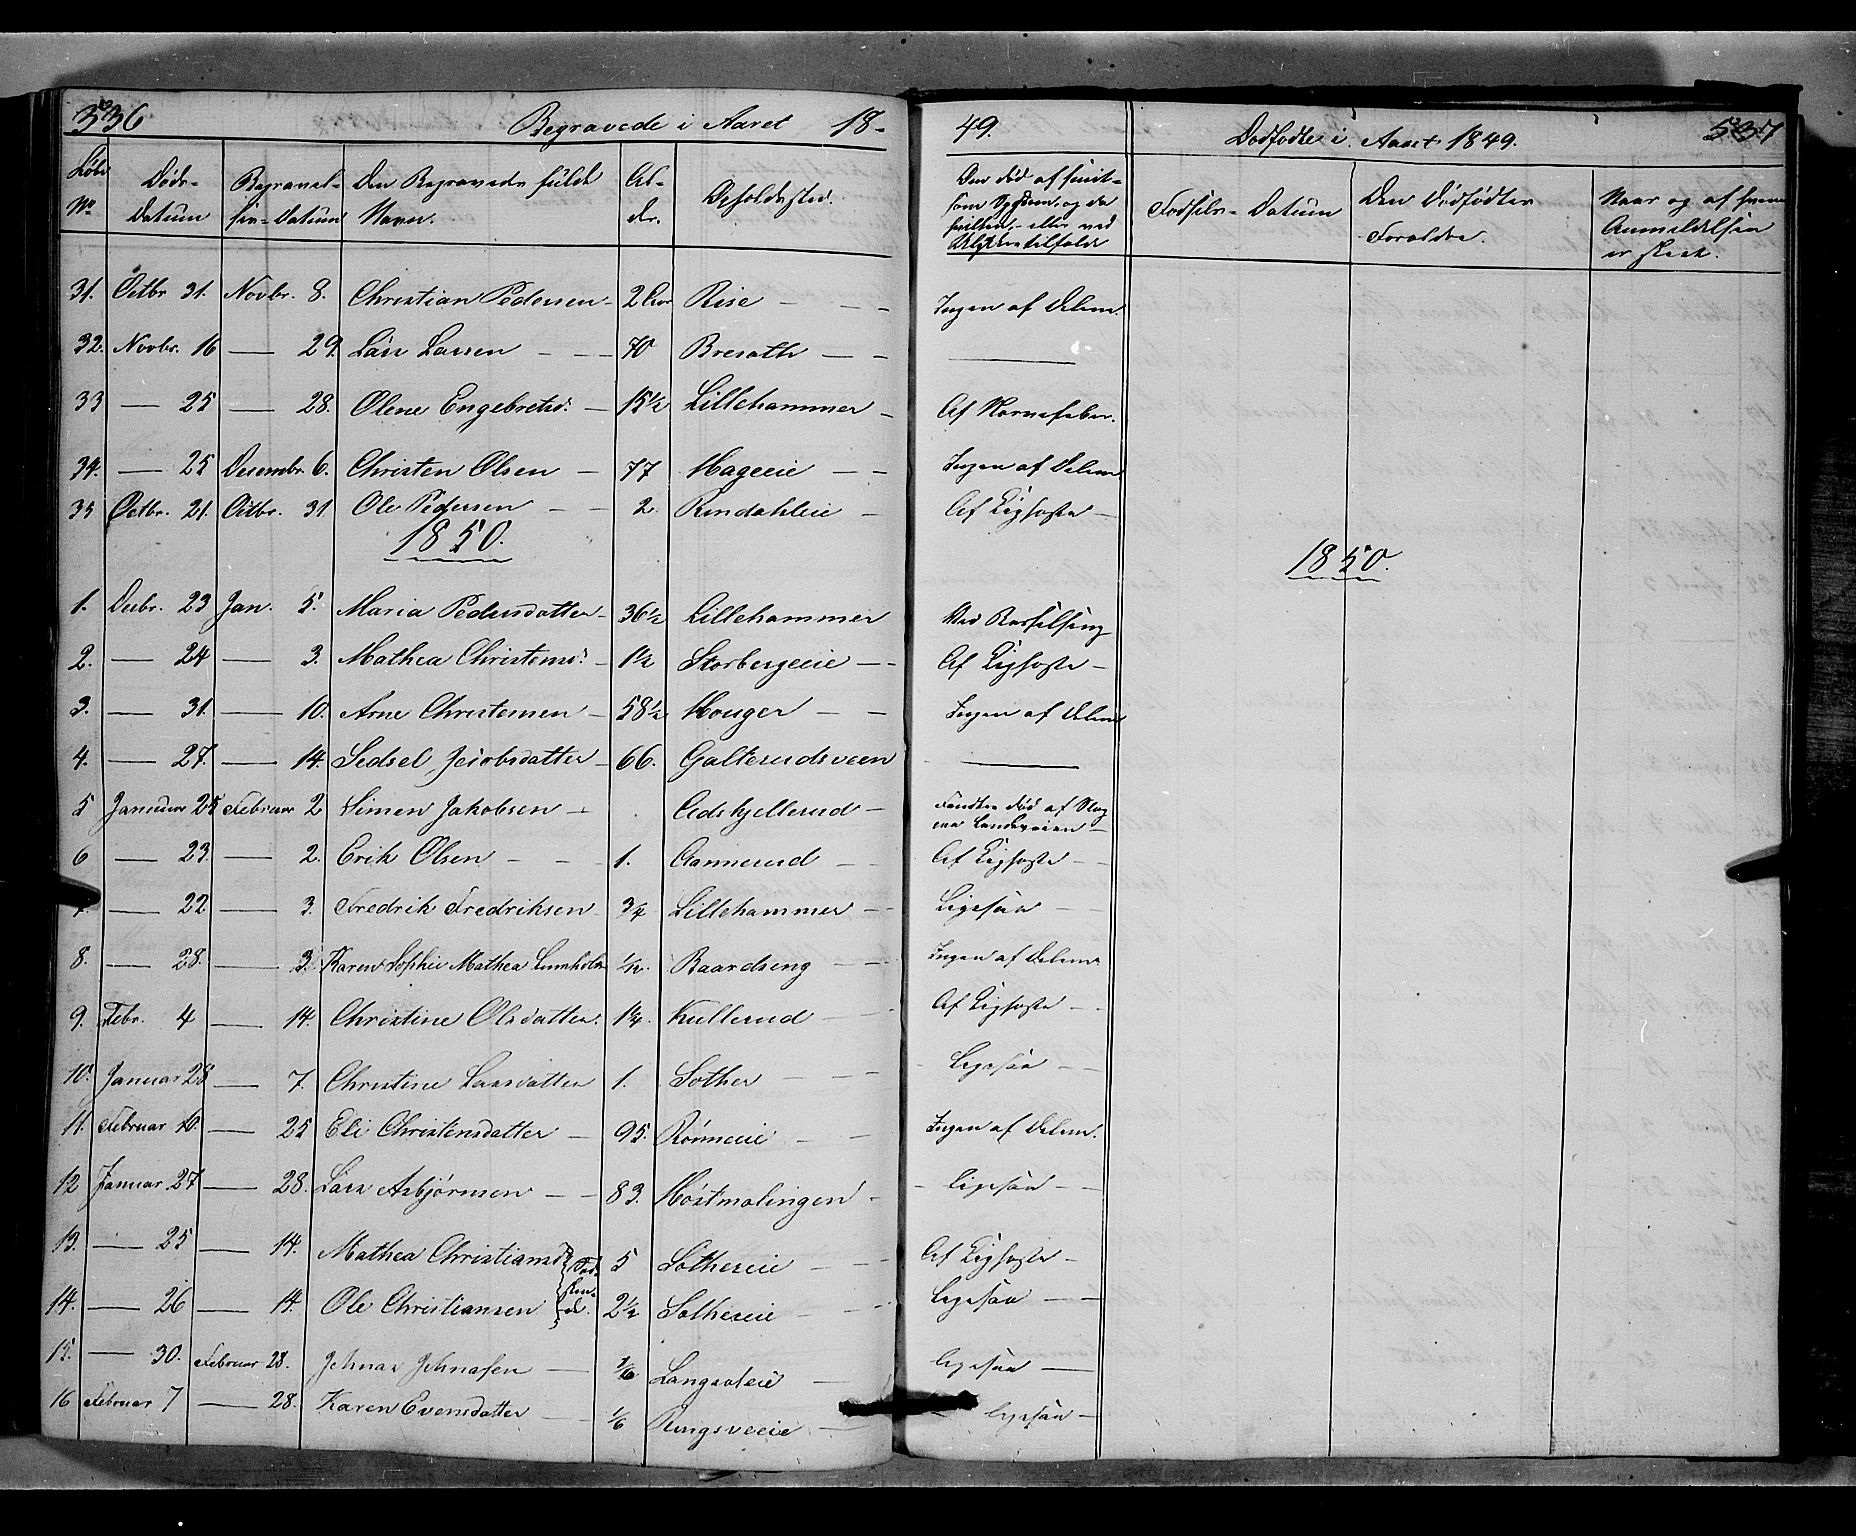 536
Begravede i Aaret 18-
49.
Dødfødte i Aaret 1849.
537
Løbe No
Døds-Datum
Begravel-ses-Datum
Den Begravedes fulde Navn.
Al-der.
Opholdssted.
Om død af smit-som Sygdom, og da hvilken, - eller ved Ulykkestilfælde
Fødsels-Datum
Den Dødfødtes Forældre.
Naar og af hvem Anmeldelsen er skeet.
31. Octbr 31. Novbr. 8. Christian Pedersen - 2 Rise - - Ingen af Delene
32. Novbr. 16 — 29. Lars Larsen - - 70 Bresath - - ———
33 — 25 — 28. Olene Engebretsd: - 15½ Lillehammer - Af Nervefeber.
34. — 25 Decembr. 6. Christen Olsen - 77 Hageeie - - Ingen af Delene
35 Octbr. 21. Octbr. 31 Ole Pedersen - - 2. Rindahleie - Af Kighoste -
1850.
1850.
1. Decbr. 23 Jan. 5. Maria Pedersdatter - 36½ Lillehammer Ved Barselseng
2. — 24 — 3. Mathea Christensd: - 1½ Storbergeeie - Af Kighoste -
3. — 31. — 10. Arne Christensen - 58½ Houger - - Ingen af Delene
4. — 27. — 14. Sedsel Jacobsdatter - 66. Galterudsveen ———
5 Januar 25 Februar 2 Simen Jakobsen - Aadskjellerud - Fundten død af Slag paa Landeveien -
6 — 23. — 2. Erik Olsen - - 1. Aannerud - Af Kighoste - -
— 22 — 3. Fredrik Fredriksen - 3/4 Lillehammer - Ligesaa -
8. — 28. — 3. Karen Sophie Mathea 1/12. Baardseng - Ingen af Delene
9. Febr. 4 — 14. Christine Olsdatter. 1¼. Kullerud - Af Kighoste - -
10. Januar 28 — 7. Christine Larsdatter 1. Sother - - - Ligesaa - -
11. Februar 10. — 25 Eli Christensdatter - 95. Rønneeie - - Ingen af Delene.
12 Januar 27 — 28. Lars Asbjørnsen - - 83. Høstmælingen - - Ligesaa - -
13. — 25 — 14. Mathea Christiansd: 5 Sothereie - - Af Kighoste -
14. — 26 — 14. Ole Christiansen 2½ Sothereie - - Ligesaa - -
Sød-sken-de.
15. — 30. Februar 28. Johnar Johnasen - 1/6 - Ligesaa -
16 Februar 7 — 28. Karen Evensdatter - 1/6 Ringsveeie - - Ligesaa -